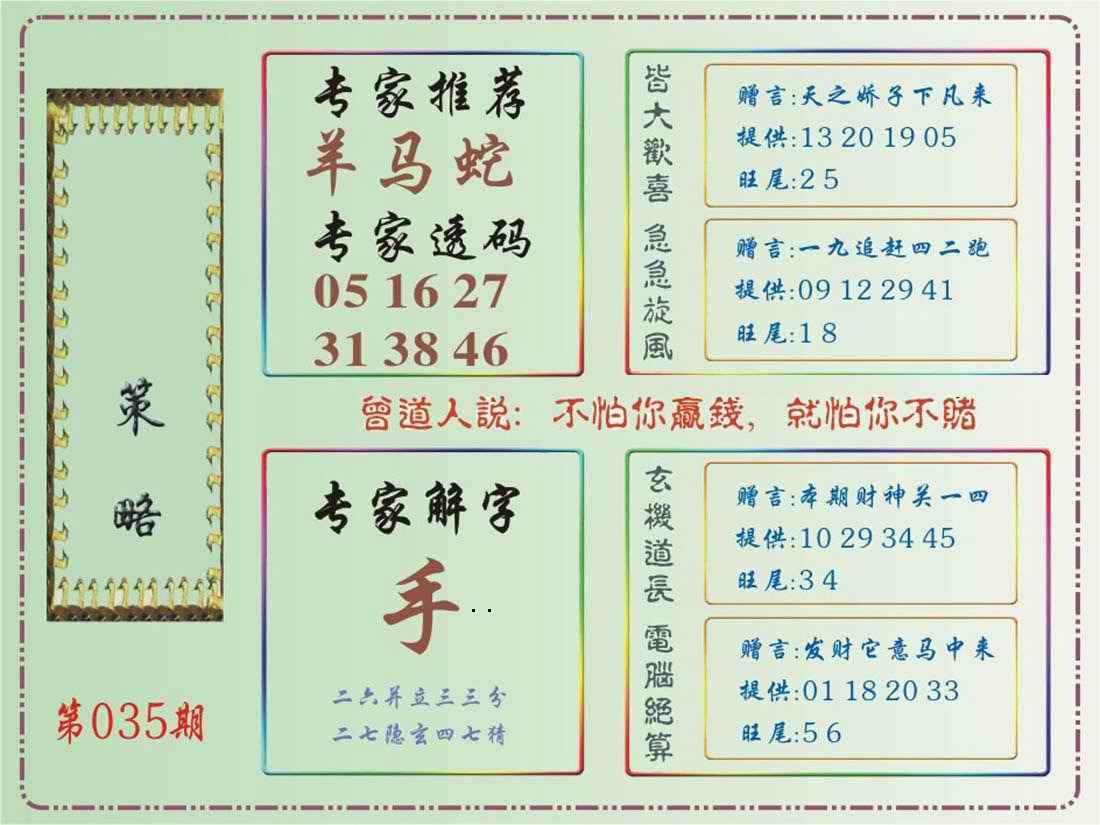 策略
第035期
专家推荐
羊马蛇
专家透码
05 16 27
31 38 46
皆大歡喜
赠言:天之娇子下凡来
提供:13 20 19 05
旺尾:2 5
急急旋風
赠言:一九追赶四二跑
提供:09 12 29 41
旺尾:1 8
曾道人説: 不怕你贏錢, 就怕你不賭
专家解字
手..
二六并立三三分
二七隐玄四七猜
玄機道長
赠言:本期财神关一四
提供:10 29 34 45
旺尾:3 4
電腦絕算
赠言:发财它意马中来
提供:01 18 20 33
旺尾:5 6